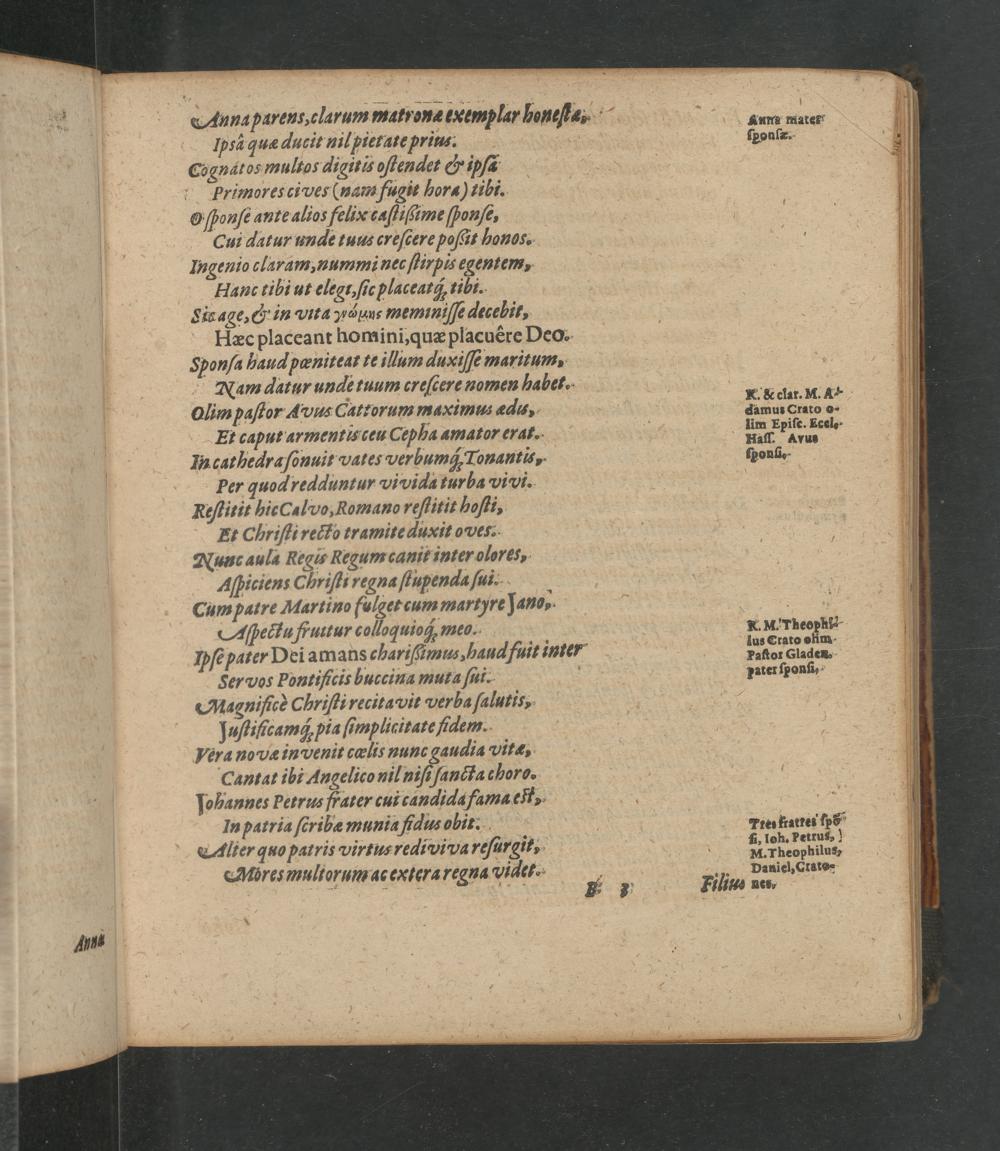 Anna parens, clarum matronæ exemplar honestæ,
Ipsâ quæ ducit nil pietate prius.
Cognatos multos digitis ostendet & ipsâ
Primores cives (nam fugit hora) tibi.
O sponse ante alios felix castißime sponse,
Cui datur unde tuus crescere poßit honos.
Ingenio claram, nummi nec stirpis egentem,
Hanc tibi ut elegi, sic placeatq́; tibi.
Sis age, & in vita γνώμης meminisse decebit,
Hæc placeant homini, quæ placuêre Deo.
Sponsa haud pœniteat te illum duxisse maritum,
Nam datur unde tuum crescere nomen habet.
Olim pastor Avus Cattorum maximus ædis,
Et caput armentis ceu Cepha amator erat.
In cathedra sonuit vates verbumq́; Tonantis,
Per quod redduntur vivida turba vivi.
Restitit hic Calvo, Romano restitit hosti,
Et Christi recto tramite duxit oves.
Nunc aulâ Regis Regum canit inter olores,
Aspiciens Christi regna stupenda sui.
Cum patre Martino fulget cum martyre Jano,
Aspectu fruitur colloquioq́; meo.
Ipse pater Dei amans charißimus, haud fuit inter
Servos Pontificis buccina muta sui.
Magnificè Christi recitavit verba salutis,
Justificamq́; pia simplicitate fidem.
Vera novæ invenit cœlis nunc gaudia vitæ,
Cantat ibi Angelico nil nisi sancta choro.
Johannes Petrus frater cui candida fama est,
In patria scribæ munia fidus obit.
Alter quo patris virtus rediviva resurgit,
Mores multorum ac extera regna videt.
B 3
Filius
Anna mater
sponsæ.
R. & clar. M. A-
damus Crato o-
lim Episc. Eccl.
Hass. Avus
sponsi,
R. M. Theophi-
lus Crato olim
Pastor Gladen.
pater sponsi,
Tres fratres spō
si, Ioh. Petrus,
M. Theophilus,
Daniel, Crato-
nes,
Annæ